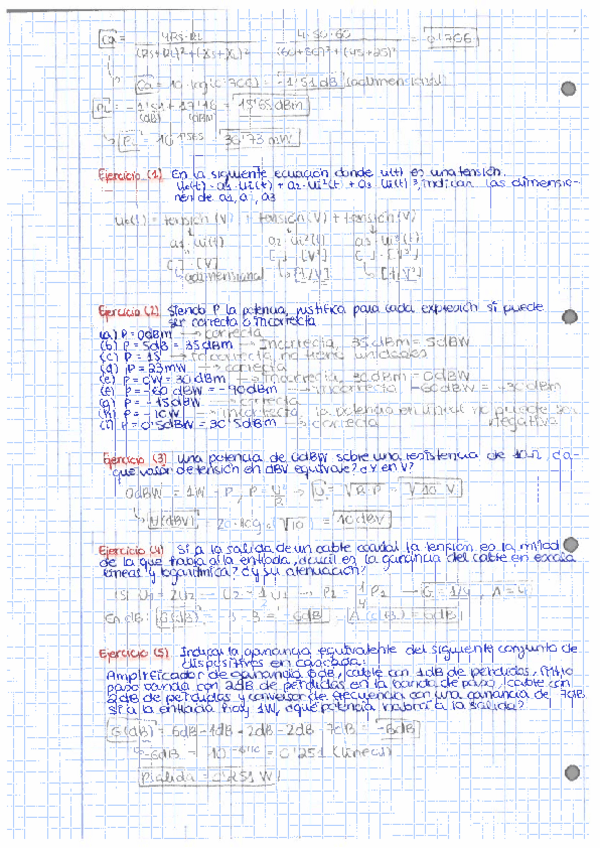 Ca = 4Rs·RL / (Rs+RL)²+(Xs+XL)² = 4·50·60 / = 0'706
Ca = 10·log(0'706) = -1'51 dB (adimensional)
PL = -1'51 + 17'16 = 15'65 dBm
(dB) (dBm)
PL = 10^1'565 = 36'73 mW
Ejercicio (1) En la siguiente ecuación donde u(t) es una tensión.
u0(t) = a1·ui(t) + a2·ui²(t) + a3·ui(t)³, indicar las dimensio-
nes de a1, a, a3
u0(t) = tensión (V) = tensión (V) + tensión (V)
a1·ui(t) a2·ui²(t) a3·ui³(t)
[ ]·[V] [ ]·[V²] [ ]·[V³]
adimensional [1/V] [1/V²]
Ejercicio (2) Siendo P la potencia, justifica para cada expresión si puede
ser correcta o incorrecta
(a) P = 0dBm → correcta
(b) P = 5dB = 35dBm → Incorrecta, 35dBm = 5dBW
(c) P = 15 → incorrecta, no tiene unidades
(d) P = 23mW → correcta
(e) P = 0W = 30dBm → Incorrecta, 30dBm = 0dBW
(f) P = -60dBW = -90dBm → incorrecta -60dBW = -30dBm
(g) P = -15dBW → correcta
(h) P = -10W → incorrecta, la potencia en lineal no puede ser
negativa
(i) P = 0'5dBW = 30'5dBm → correcta
Ejercicio (3) Una potencia de 0dBW sobre una resistencia de 10Ω, ¿a
que valor de tensión en dBV equivale? ¿Y en V?
0dBW = 1W = P, P = U²/R → U = √R·P = √10 V
U(dBV) = 20·log(√10) = 10dBV
Ejercicio (4) Si a la salida de un cable coaxial la tensión es la mitad
de la que había a la entrada, ¿cuál es la ganancia del cable en escala
lineal y logarítmica? ¿Y su atenuación?
Si U1 = 2U2 U2 = 1/2 U1 → P2 = 1/4 P1 → G = 1/4, A = 4
En dB: G(dB) = -6dB A(dB) = 6dB
Ejercicio (5) Indicar la ganancia equivalente del siguiente conjunto de
dispositivos en cascada:
Amplificador de ganancia 6dB, cable con 1dB de pérdidas, filtro
paso banda con 2dB de pérdidas en la banda de paso, cable con
2dB de pérdidas y conversor de frecuencia con una ganancia de -7dB.
Si a la entrada hay 1W, ¿que potencia habrá a la salida?
G(dB) = 6dB-1dB-2dB-2dB-7dB = -6dB
-6dB = 10^-6/10 = 0'251 (lineal)
Psalida = 0'251 W